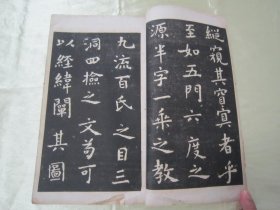 縱窺其寳寘者乎
至如五門六度之
源半字一乘之教
九流百氏之目三
洞四檢之文苟可
以經緯闡其圖